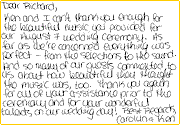 Dear Richard,
Ken and I can't thank you enough for
the beautiful music you provided for
our August 4 wedding ceremony. As
far as we're concerned everything was
perfect - from the selections to the sound.
And so many of our guests commented to
us about how beautiful they thought
the music was, too. Thank you again
for all of your assistance prior to the
ceremony and for your wonderful
talents on our wedding day! Best Regards,
Carolyn & Ken